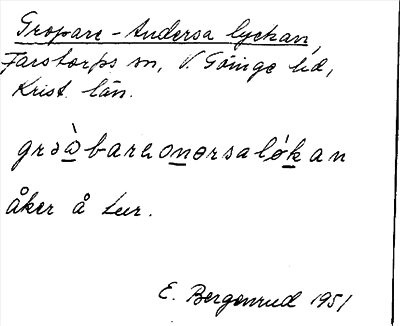 Gropare-Andersa lyckan,
Farstorps sn, V. Göinge hd,
Krist. län.
grɔàbaraonørsalókan
åker å Lur.
E. Bergenrud 1951